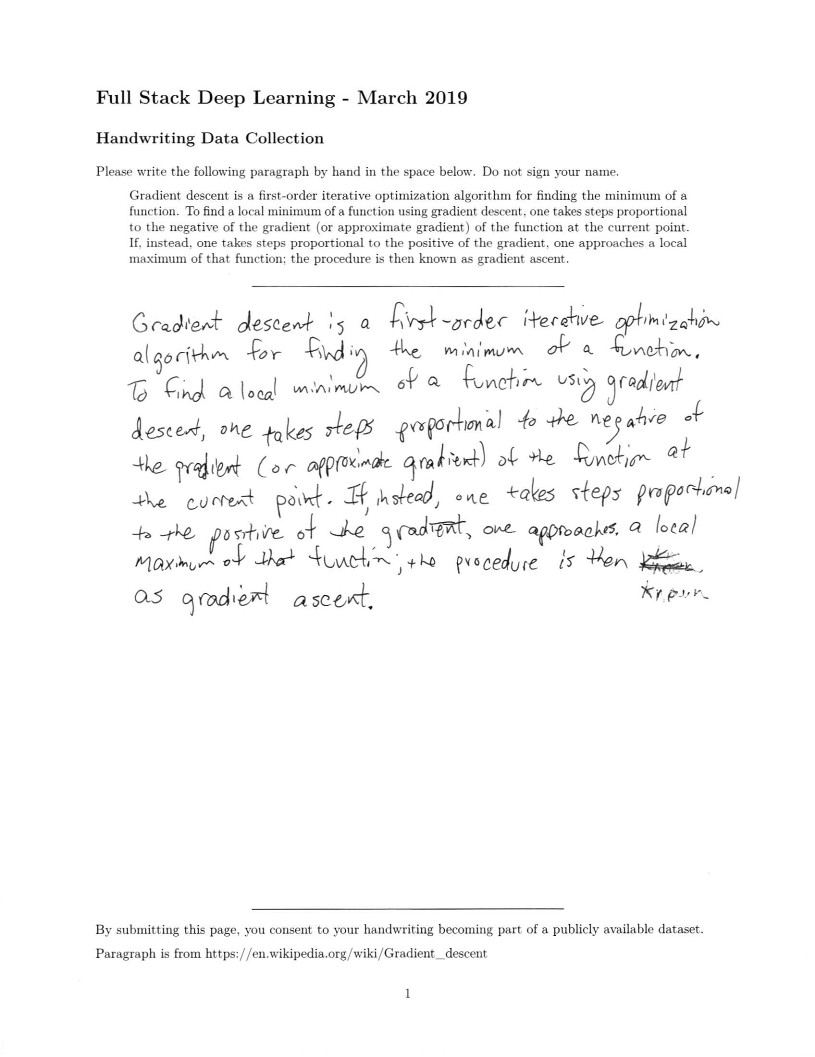 Full Stack Deep Learning - March 2019
Handwriting Data Collection
Please write the following paragraph by hand in the space below. Do not sign your name.
Gradient descent is a first-order iterative optimization algorithm for finding the minimum of a
function. To find a local minimum of a function using gradient descent, one takes steps proportional
to the negative of the gradient (or approximate gradient) of the function at the current point.
If, instead, one takes steps proportional to the positive of the gradient, one approaches a local
maximum of that function; the procedure is then known as gradient ascent.
Gradient descent is a first-order iterative optimization
algorithm for finding the minimum of a function.
To find a local minimum of a function using gradient
descent, one takes steps proportional to the negative of
the gradient (or approximate gradient) of the function at
the current point. If, instead, one takes steps proportional
to the positive of the gradient, one approaches a local
maximum of that function; the procedure is then
known
as gradient ascent.
By submitting this page, you consent to your handwriting becoming part of a publicly available dataset.
Paragraph is from https://en.wikipedia.org/wiki/Gradient_descent
1